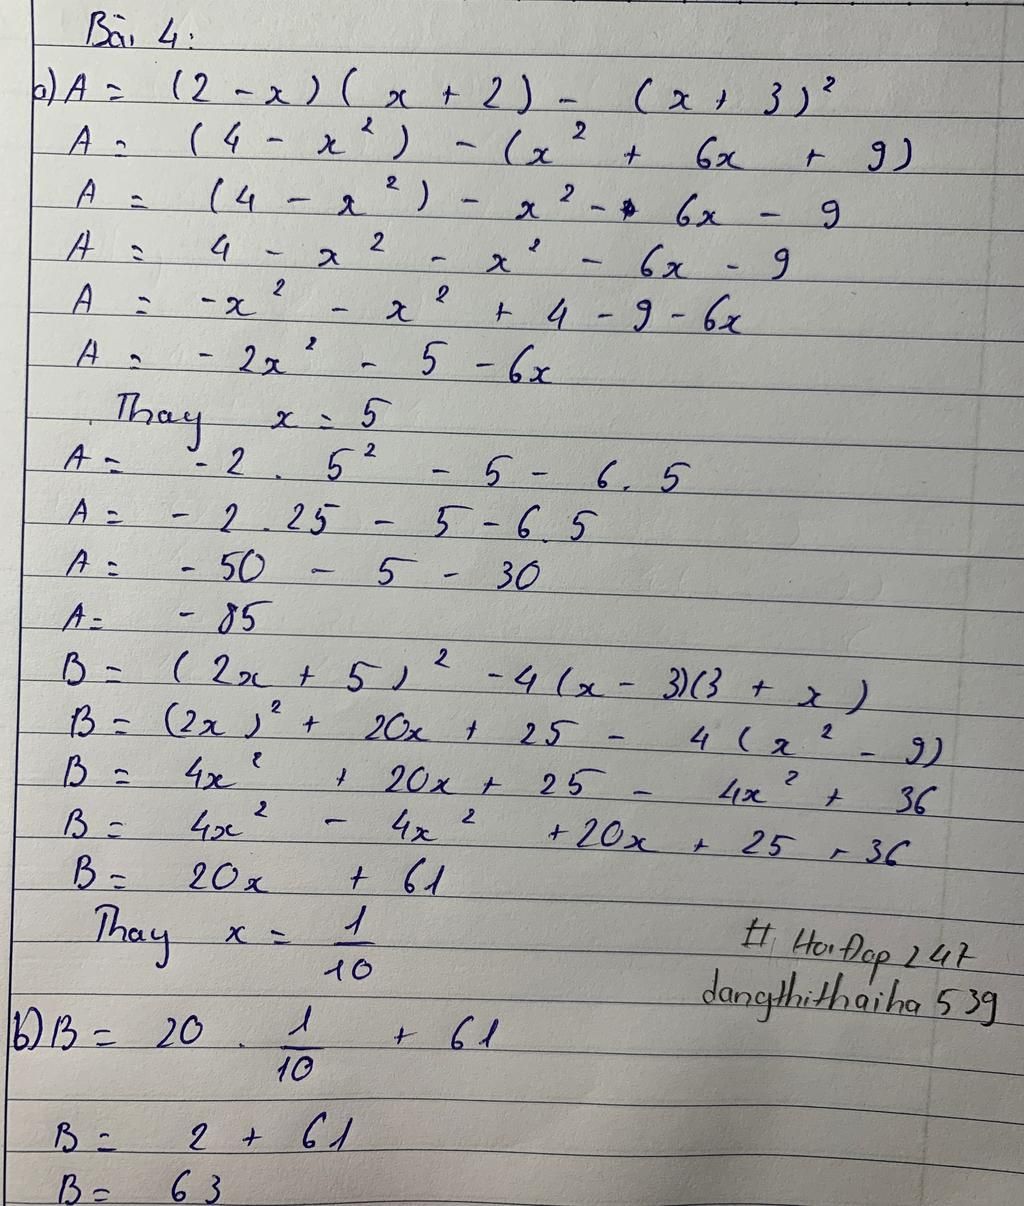 Bài 4:
a) A = (2 - x)(x + 2) - (x + 3)²
A = (4 - x²) - (x² + 6x + 9)
A = (4 - x²) - x² - 6x - 9
A = 4 - x² - x² - 6x - 9
A = -x² - x² + 4 - 9 - 6x
A = - 2x² - 5 - 6x
Thay x = 5
A = - 2 . 5² - 5 - 6 . 5
A = - 2 . 25 - 5 - 6 . 5
A = - 50 - 5 - 30
A = - 85
B = (2x + 5)² - 4(x - 3)(3 + x)
B = (2x)² + 20x + 25 - 4(x² - 9)
B = 4x² + 20x + 25 - 4x² + 36
B = 4x² - 4x² + 20x + 25 + 36
B = 20x + 61
Thay x = 1/10
# HoiDap 247
dangthithaiha 539
b) B = 20 . 1/10 + 61
B = 2 + 61
B = 63